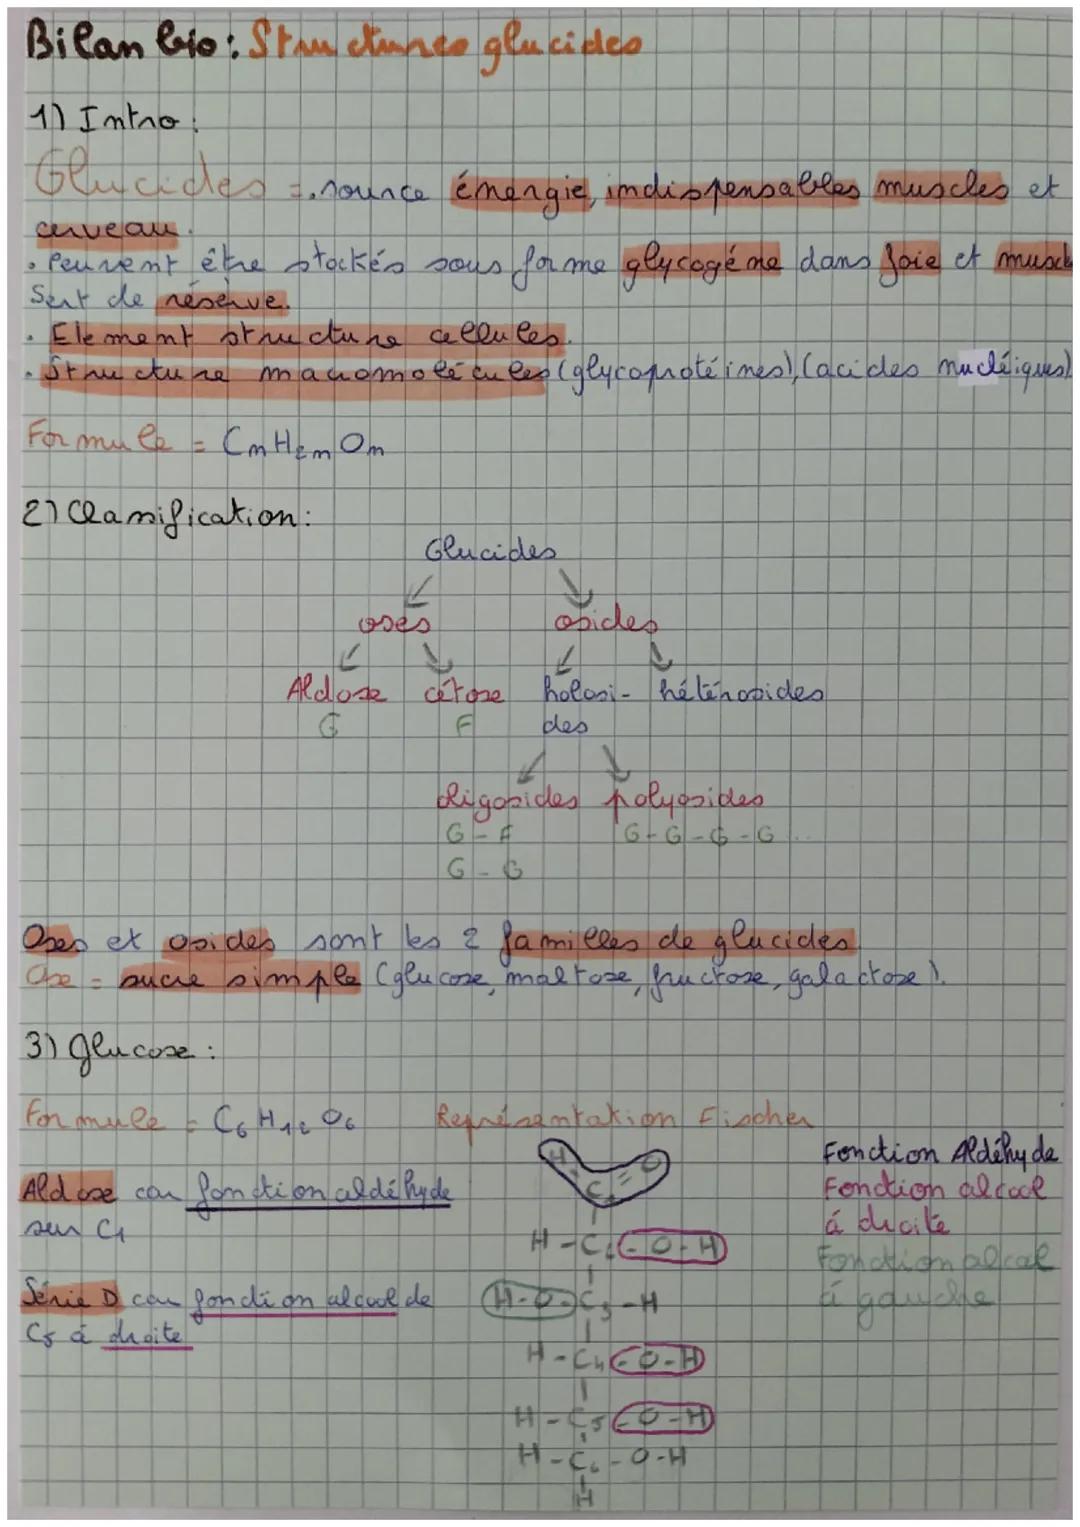 Bilan bio : Structures glucides
1) Intro :
Glucides = . source énergie, indispensables muscles et
cerveau.
. Peuvent être stockés sous forme glycogéne dans foie et muscl
Sert de réserve.
. Element structure cellules.
. Structure macromolécules (glycoprotéines), (acides nucléiques)
Formule = CnH2nOn
2) Classification :
Glucides
oses osides
Aldose cétose holosi- hétérosides
G F des
oligosides polyosides
G - F G-G-G-G...
G - G
Oses et osides sont les 2 familles de glucides.
Ose = sucre simple (glucose, maltose, fructose, galactose).
3) glucose :
Formule = C6H12O6 Représentation Fischer
H O Fonction Aldéhyde
Aldose car fonction aldéhyde C1 = Fonction alcool
sur C1 á droite
H - C2 - O - H Fonction alcool
Série D car fonction alcool de H - O - C3 - H á gauche
C5 á droite
H - C4 - O - H
H - C5 - O - H
H - C6 - O - H
H